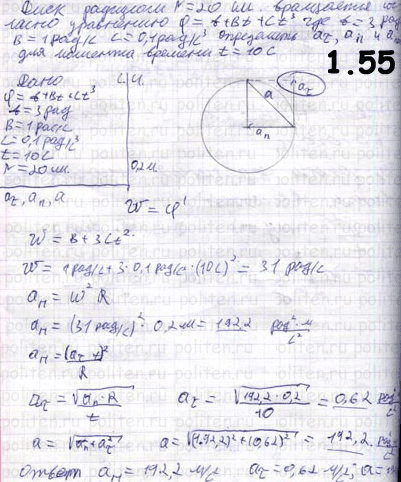 Диск радиусом r = 20 см. вращается сог-
ласно уравнению φ = A+Bt+Ct³ где A = 3 рад
B = 1 рад/с C = 0,1 рад/с³ определить aτ, an и a
для момента времени t = 10 с
1.55
Дано С.И.
φ = A+Bt+Ct³
A = 3 рад
B = 1 рад/с
C = 0,1 рад/с³
t = 10 с
r = 20 см. 0,2 м
aτ, an, a
a aτ
an
W = φ'
W = B + 3Ct².
W = 1 рад/с + 3·0,1 рад/с·(10с)² = 31 рад/с
an = W² R
an = (31 рад/с)²·0,2 м = 192,2 рад²·м/с²
an = (aτ t)²/R
aτ = √an·R/t aτ = √192,2·0,2/10 = 0,62 рад
a = √an+aτ² a = √(192,2)²+(0,62)² = 192,2 рад
Ответ an = 192,2 м/с aτ = 0,62 м/с; a = 1
politen.ru